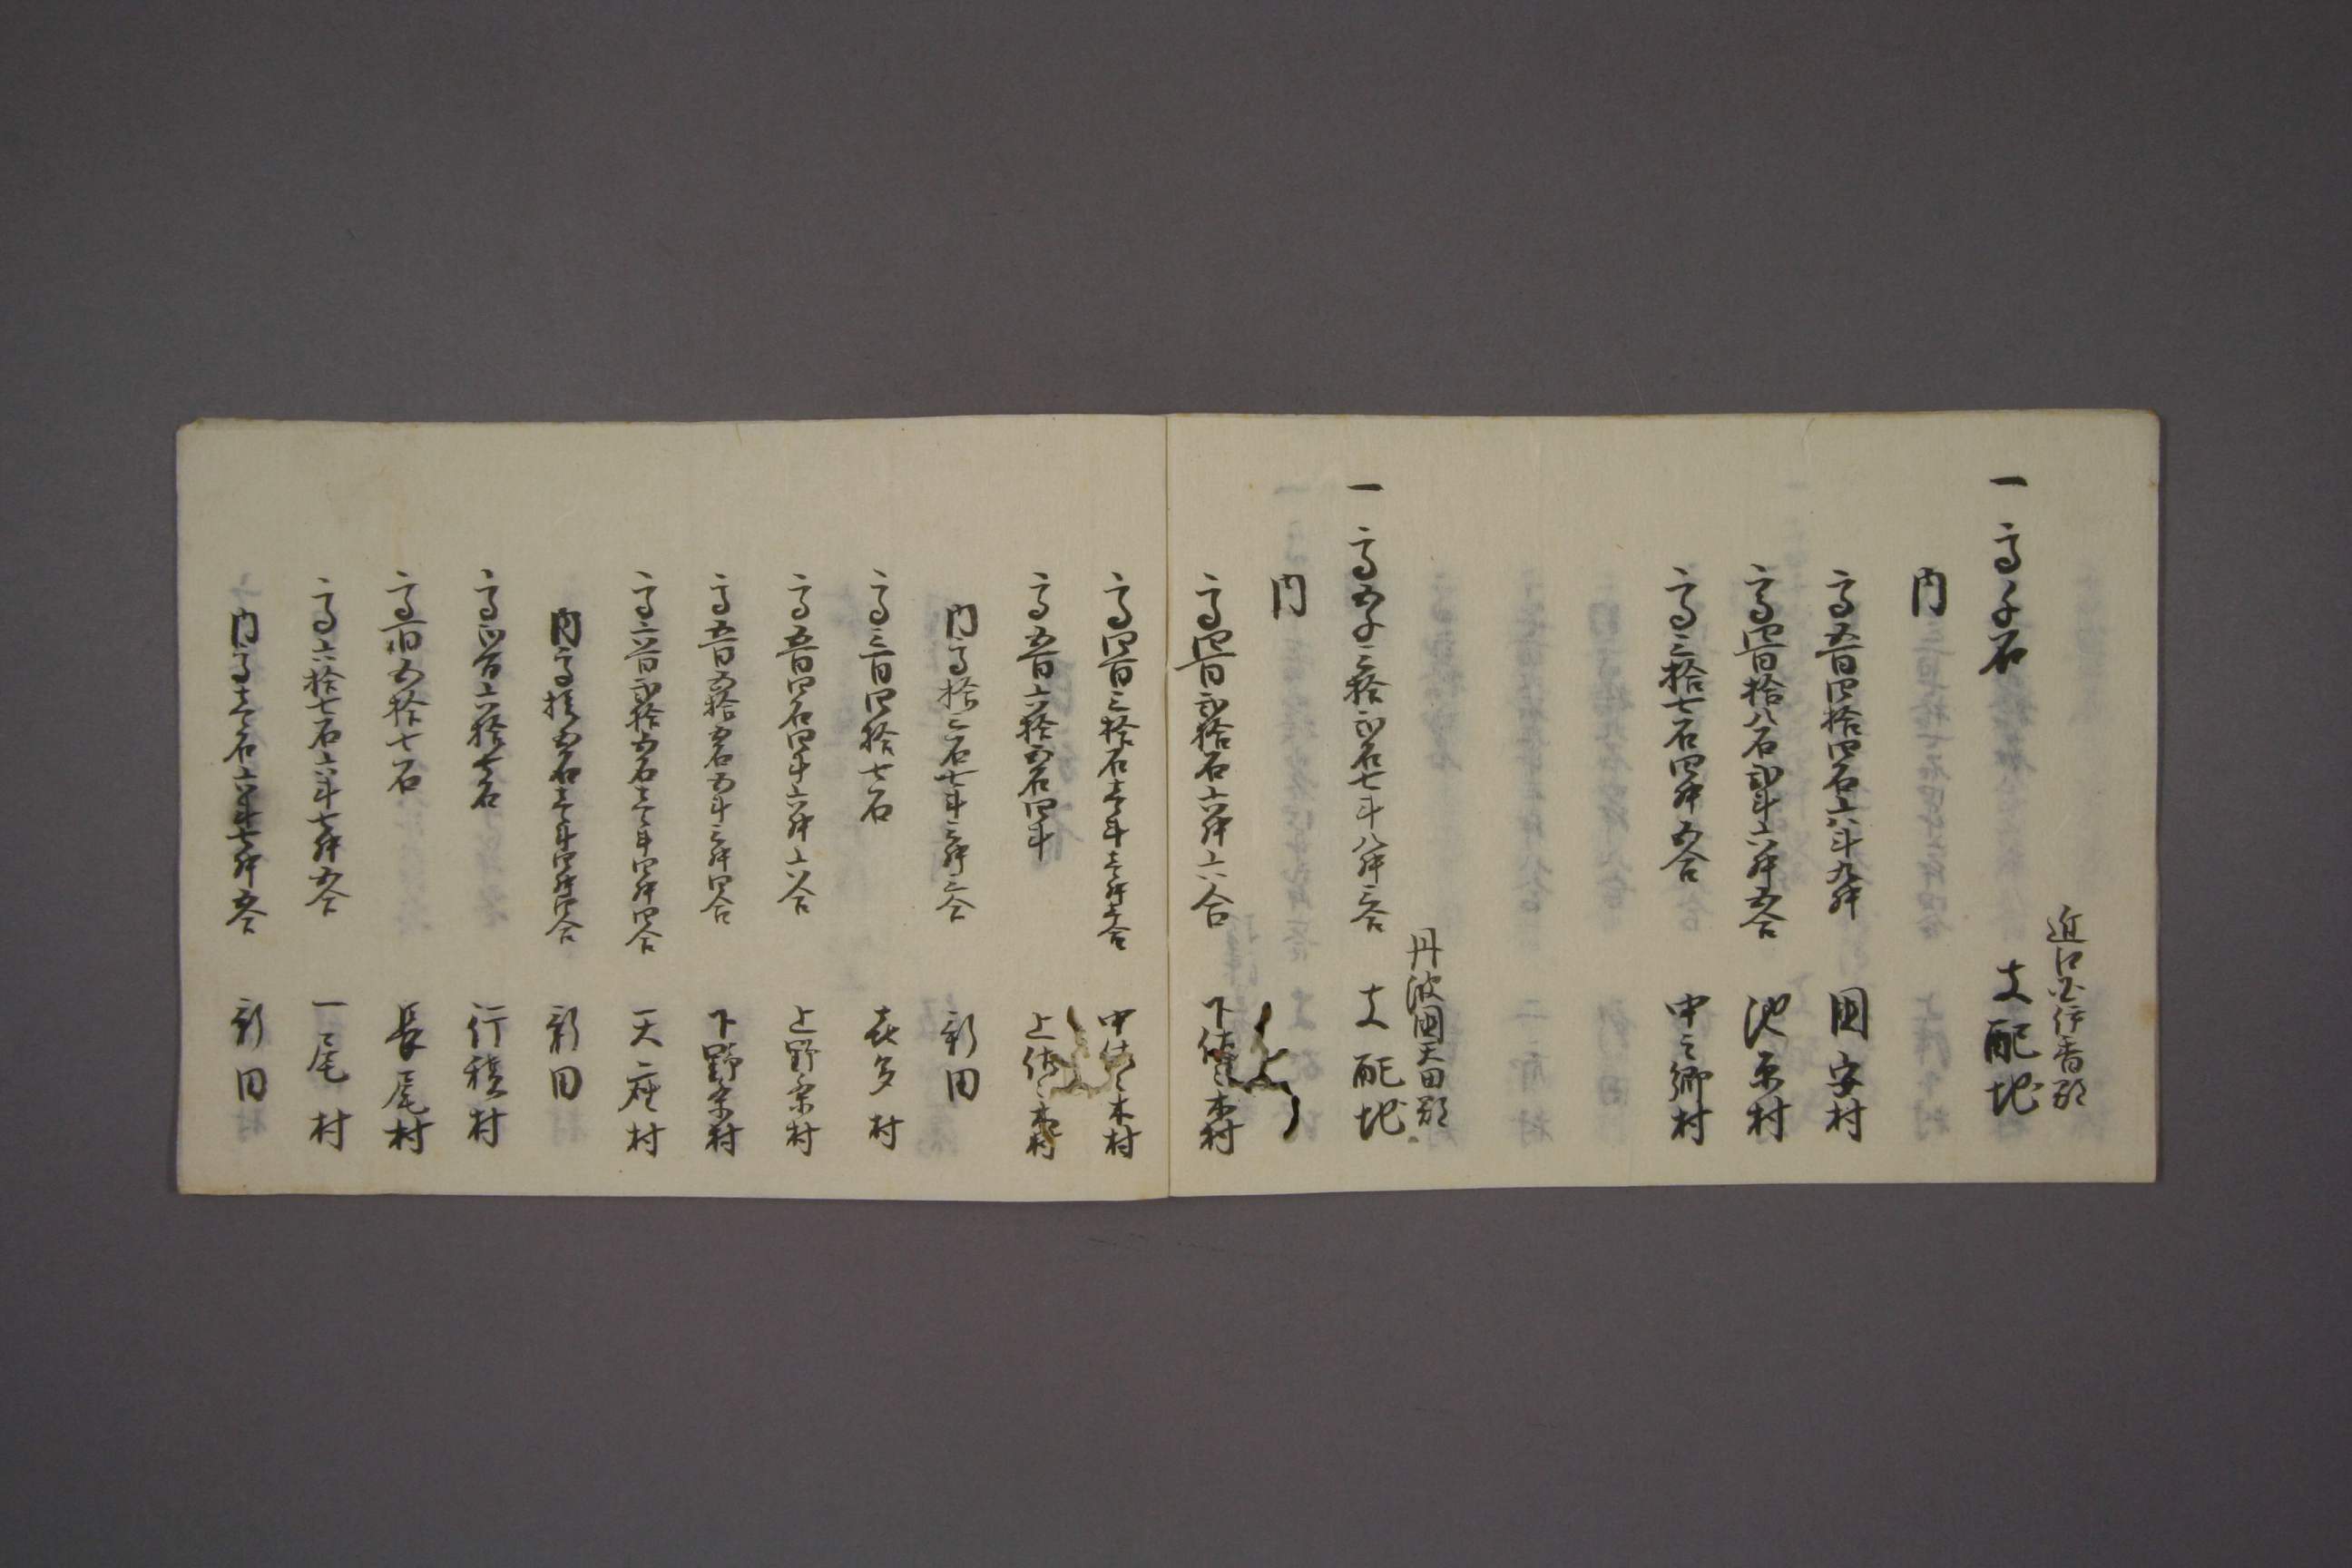 近江国伊香郡
一高千石 支配地
内
高五百四拾四石六斗九升 国安村
高四百拾八石弐斗六升五合 池原村
高三拾七石四升五合 中之郷村
丹波国天田郡
一高五千三拾弐石七斗八升三合 支配地
内
高四百弐拾石六升六合 下佐々木村
高四百三拾石壱斗壱升壱合 中佐々木村
高五百六拾五石四斗 上佐々木村
内高拾三石七斗三升三合 新田
高三百四拾七石 喜多村
高五百四石四斗六升六合 上野条村
高五百五拾五石五斗三升四合 下野条村
高六百弐拾五石壱斗四升四合 天座村
内高拾五石壱斗四升四合 新田
高四百六拾七石 行積村
高百五拾七石 長尾村
高六拾七石六斗七升五合 一尾村
内高壱石六斗七升五合 新田